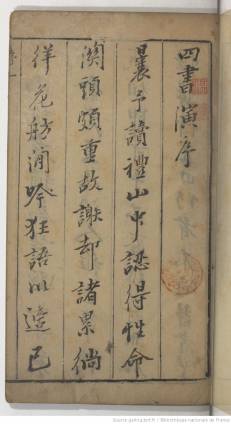 四書演序
曩予讀禮山中認得性命
関頭頗重故謝却諸累徜
徉危舫涌吟狂語以遣已
Source gallica.bnf.fr / Bibliothèque nationale de France